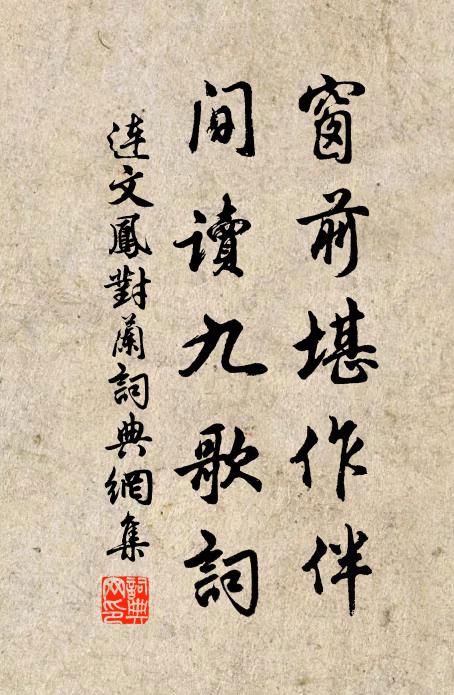 窗前堪作伴
間讀九歌詞
連文鳳對蘭詞典網集
詞典